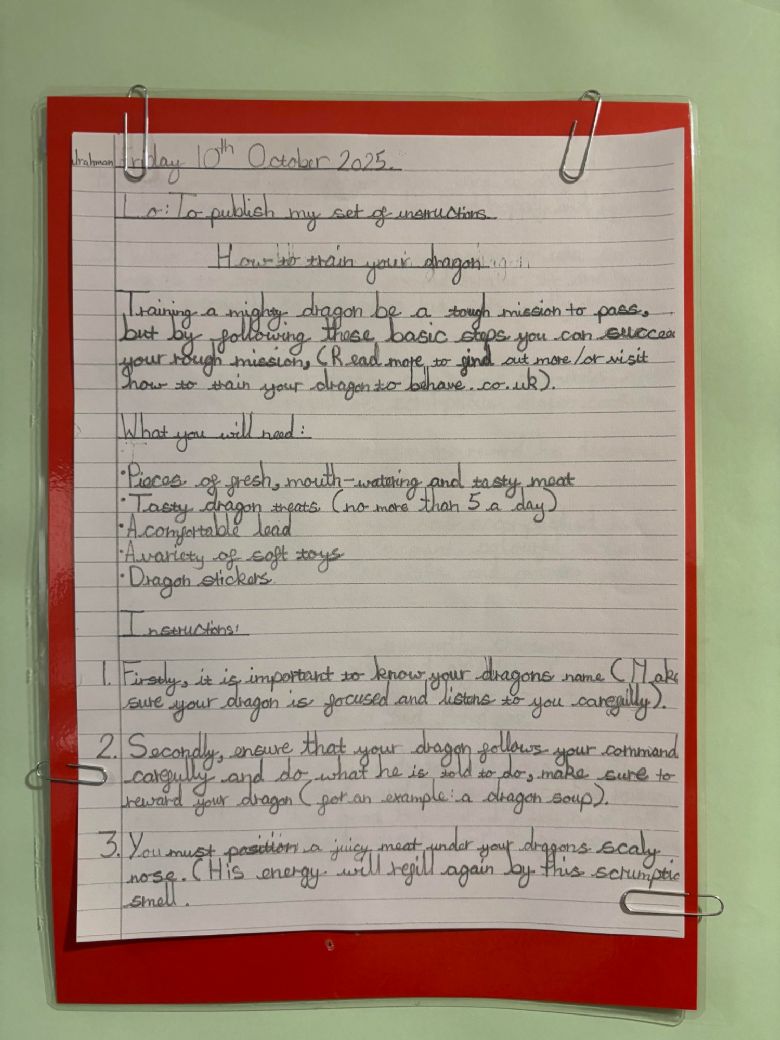 Friday 10th October 2025.
Lo: To publish my set of instructions
How to train your dragon
Training a mighty dragon be a tough mission to pass,
but by following these basic steps you can succee
your rough mission, (Read more to find out more/or visit
how to train your dragon to behave.co.uk).
What you will need:
·Pieces of fresh, mouth-watering and tasty meat
·Tasty dragon treats (no more than 5 a day)
·A comfortable lead
·A variety of soft toys
·Dragon stickers
Instructions:
1. Firstly, it is important to know your dragons name (Make
sure your dragon is focused and listens to you carefully).
2. Secondly, ensure that your dragon follows your command
carefully and do what he is told to do, make sure to
reward your dragon (for an example: a dragon soup).
3. You must position a juicy meat under your dragons scaly
nose. (His energy will refill again by this scrumptio
smell.